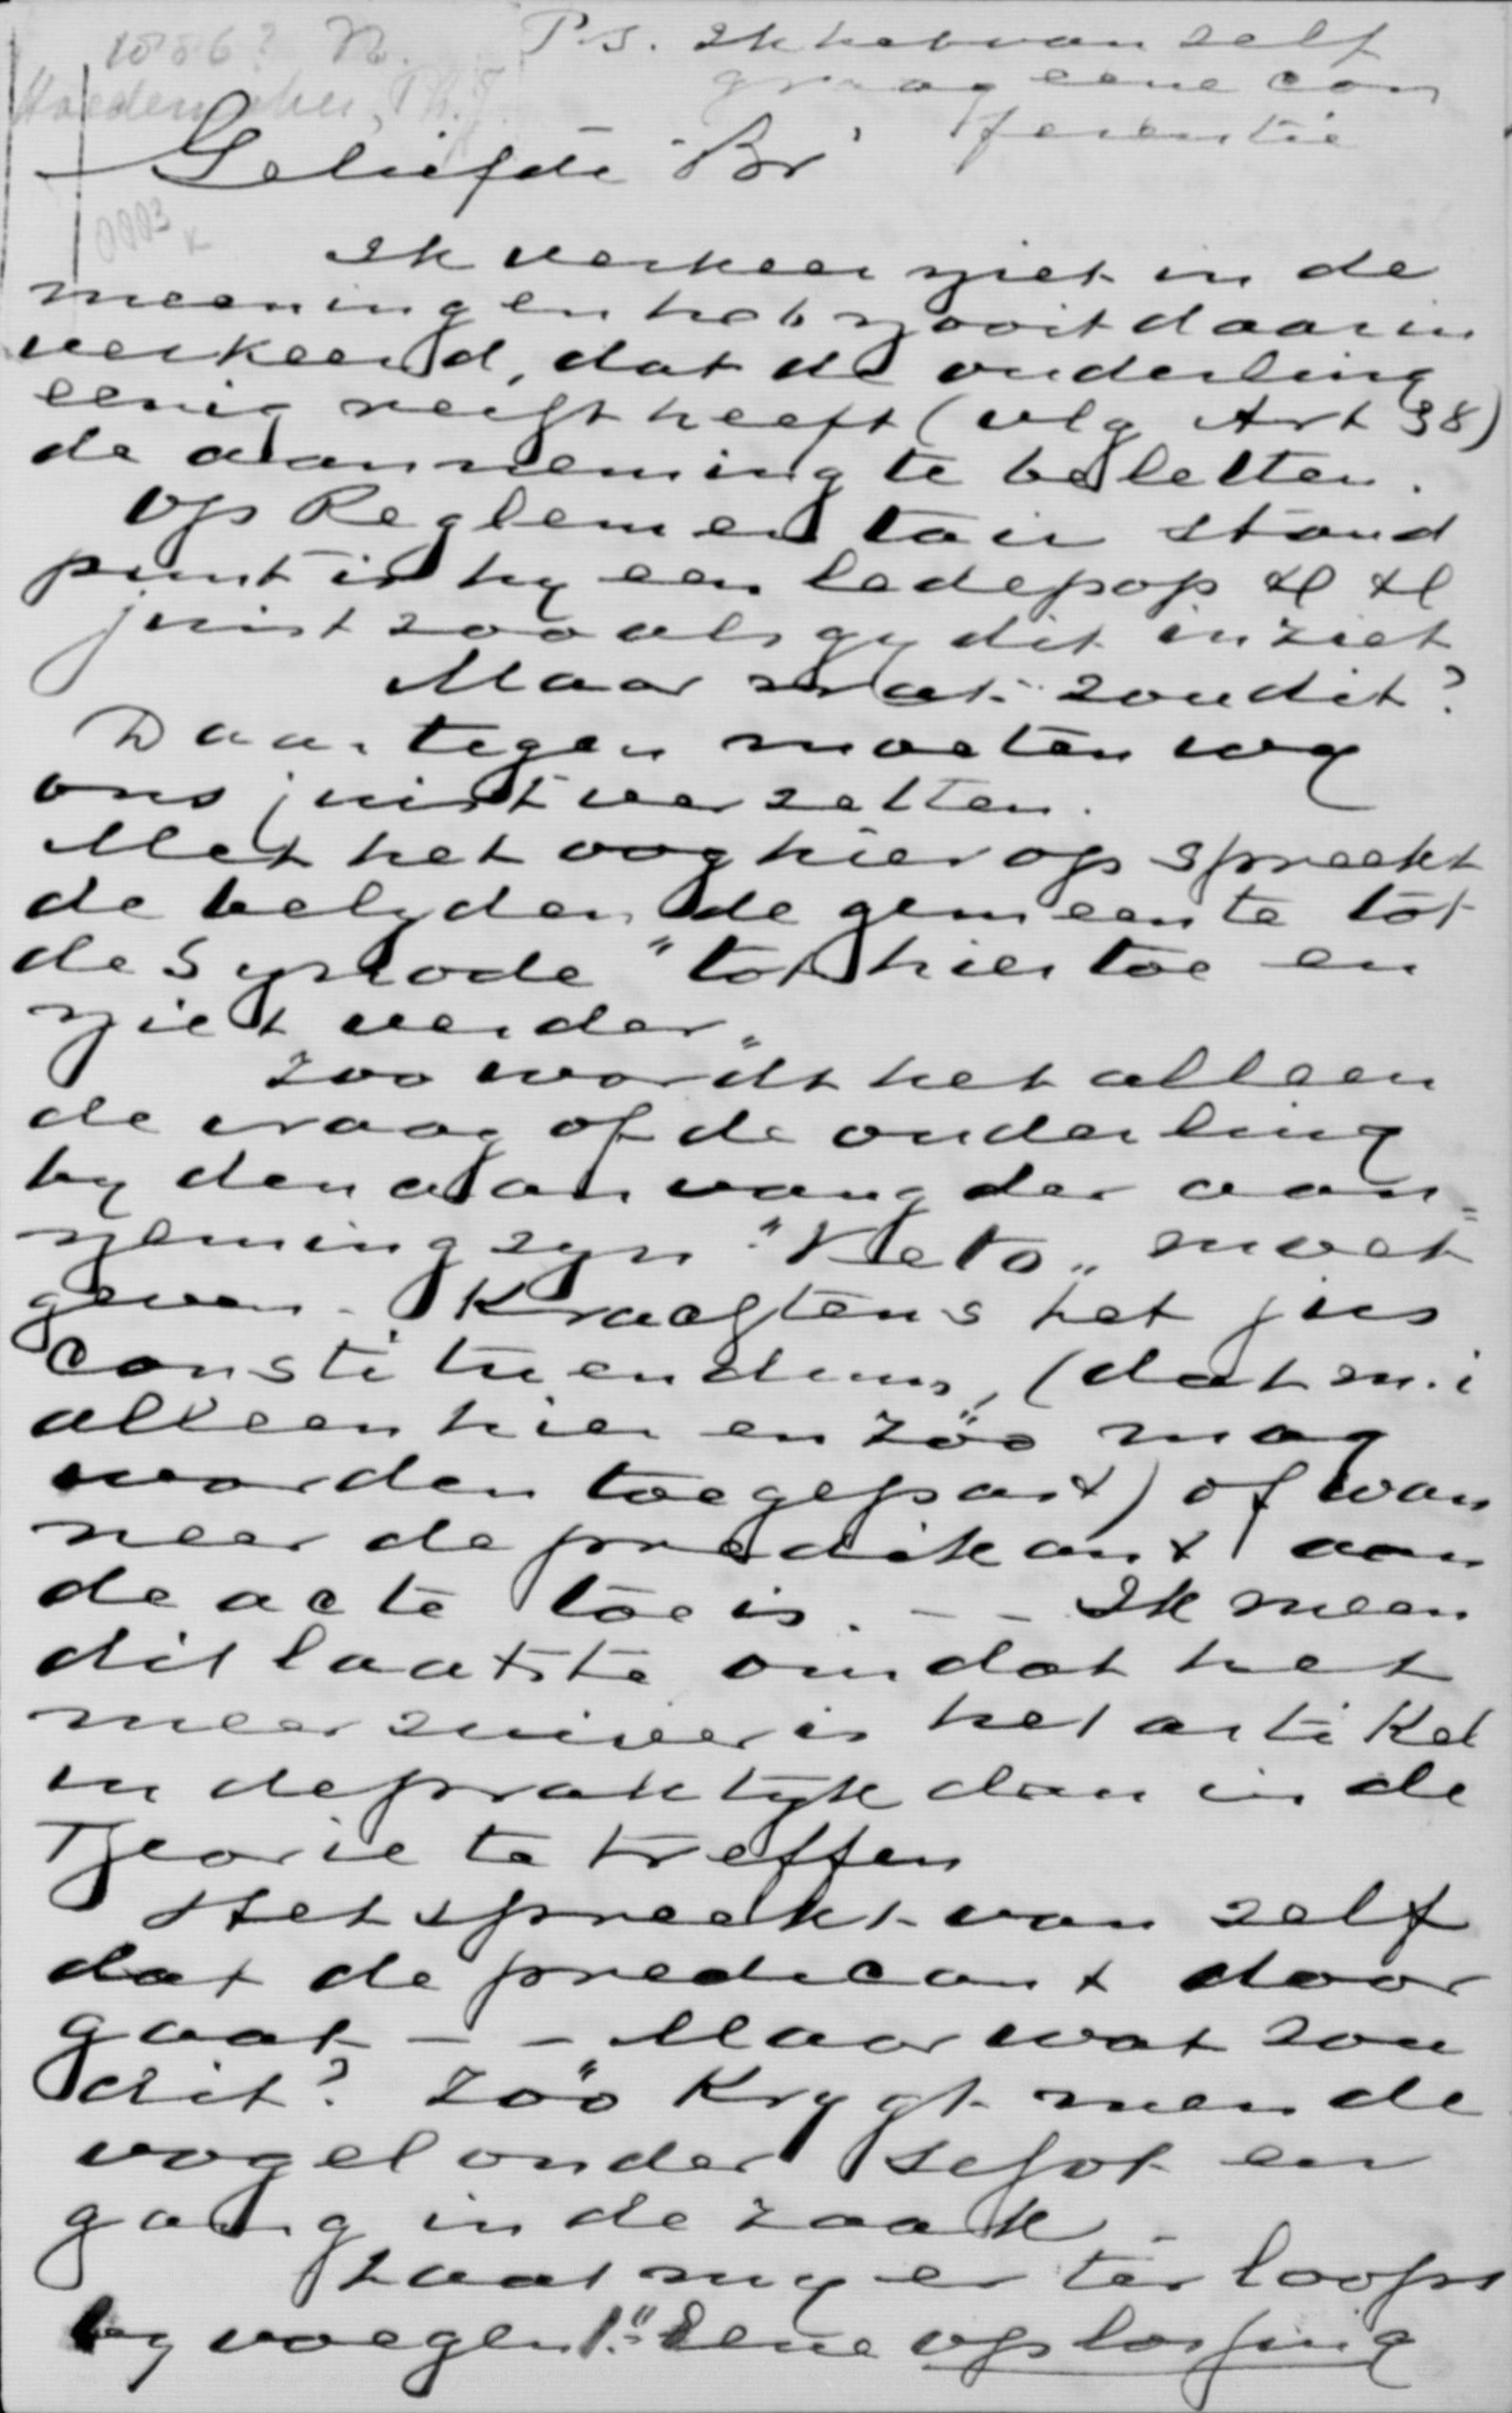 1886? N.
Hoedemaker, Ph. J.
P.S. Ik heb van zelf
graag eene con
ferentie
Geliefde Br
0003
Ik verkeer niet in de
meening en heb nooit daarin
verkeerd, dat de ouderling
eenig recht heeft (vlg Art 38)
de aanneming te beletten.
Op Reglementair stand
punt is hy een ledepop
juist zooals gy dit inziet
Maar wat zou dit?
Daartegen moeten wy
ons juist verzetten.
Met het oog hierop spreekt
de belydende gemeente tot
de Synode "tot hiertoe en
niet verder„
Zoo wordt het alleen
de vraag of de ouderling
by den aanvang der aan=
neming zyn "Veto„ moet
geven. Krachtens het jus
constituendum, (dat m.i
alleen hier en zóó mag
worden toegepast) of wan
neer de predikant aan
de acte toe is. - - Ik meen
dit laatste omdat het
meer zuiver is het artikel
in de praktyk dan in de
Theorie te treffen
Het spreekt van zelf
dat de predicant door
gaat - - Maar wat zou
dit? Zóó krygt men de
vogel onder schot en
gang in de zaak.
Laat my er ter loops
by voegen 1.° Eene oplossing